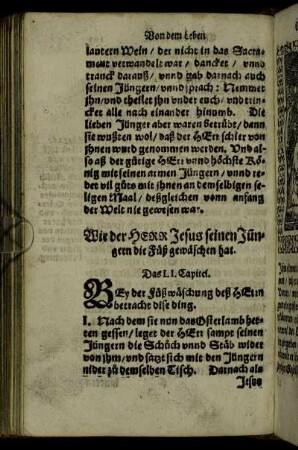 Von dem Leben
lautern Wein / der nicht in das Sacra-
ment verwandelt war / dancket / vnnd
tranck darauß / vnnd gab darnach auch
seinen Jüngern / vnnd sprach: Nemmet
jhn / vnd theilet jhn vnder euch / vnd trin-
cket alle nach einander hinumb. Die
lieben Jünger aber waren betrübt / dann
sie wußten wol / daß der HErr schier von
jhnen wurd genommen werden. Vnd al-
so aß der gütige HErr vnnd höchste Kö-
nig mit seinen armen Jüngern / vnnd re-
det vil güts mit jhnen an demselbigen se-
ligen Maal / deßgleichen vonn anfang
der Welt nie gewesen war.
Wie der HERR Jesus seinen Jün-
gern die Füß gewäschen hat.
Das LI. Capitel.
BEy der Füßwäschung deß HErrn
betracht dise ding.
I. Nach dem sie nun das Osterlamb het-
ten gessen / leget der HErr sampt seinen
Jüngern die Schüch vnnd Stäb wider
von jhm / vnd satzt sich mit den Jüngern
nider zü demselben Tisch. Darnach als
Jesus